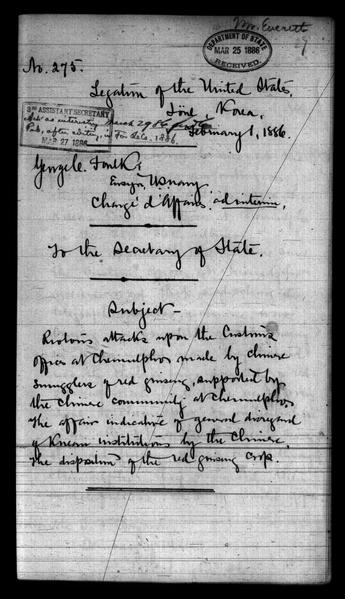 Mr. Everett
DEPARTMENT OF STATE
MAR 25 1886
RECEIVED.
No. 275.
Legation of the United States,
Söul Korea,
February 1, 1886.
3RD ASSISTANT SECRETARY
MAR 27 1886
George C. Foulk,
Ensign U.S. Navy
Chargé d'Affaires ad interim,
To the Secretary of State.
Subject—
Riotous attacks upon the Customs
offices at Chemulpho made by Chinese
smugglers of red ginseng, supported by
the Chinese community at Chemulpho.
The affair indicative of general disregard
of Korean institutions by the Chinese.
The disposition of the red ginseng crop.